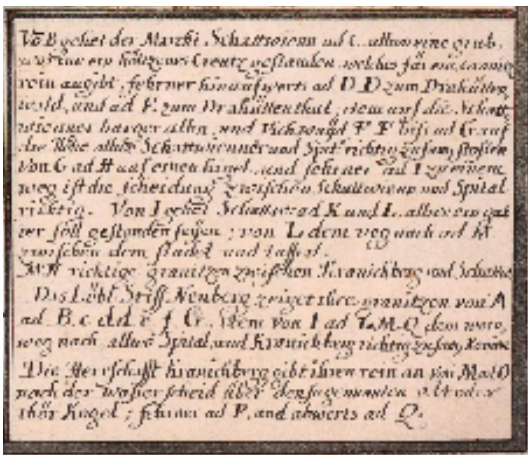 Vo B gehet der Marckt Schattwienn ad C. allwo eine grub,
ein höltzenes Creutz gestanden, welches für ein
rein angibt, fehrner hinaufwerts ad D. D zum
wald, und ad E. zum thal, item auf die Schatt
wienner burger alben, und Viehwayd F F biß ad G. auf
der Höhe allwo Schattwienner und Spital richtig zusam̅ stossen
Von G ad H auf einen hügel, und fehrner ad I zu einem
weg ist die scheidung zwischen Schattwienn und Spital
richtig. Von I gehet Schattw: ad K und L. alwo ein gat
ter soll gestanden seyen; von L dem weg nach ad M
zwischen dem und
M N richtige granitzen zwischen Kranichberg und Schattw:
Das Löbl: Stifft Neuberg zeiget ihre granitzen von A
ad B. c d d e f G. item von I ad L. M. Q dem
weg nach allwo Spital, und Kranichberg richtig zusam̅
Die Herrschafft Kranichberg gibt ihren rein an von M ad O
nach der wasser scheid über den sogenannten
Kogel; fehrner ad P. und abwerts ad Q.